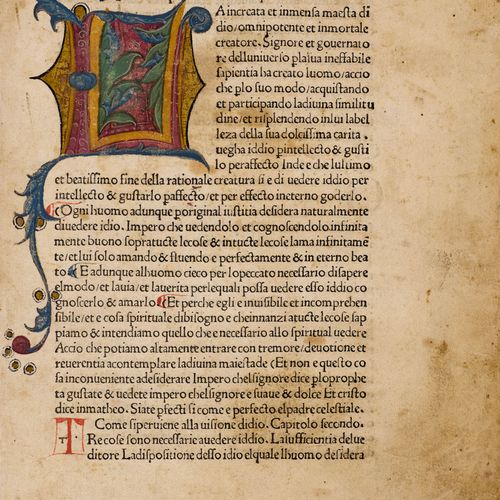 L
A increata et inmensa maesta di
dio/omnipotente et inmortale
creatore. Signore et gouernato
re delluniuerso plasua ineffabile
sapientia ha creato luomo/accio
che plo suo modo/acquistando
et participando ladiuina similitu
dine/et risplendendo inlui label
leza della sua dolcissima carita.
uegha iddio pintellecto & gusti
lo peraffecto Inde e che lultimo
et beatissimo fine della rationale creatura si e di uedere iddio per
intellecto & gustarlo paffecto/et per effecto ineterno goderlo.
Ogni huomo adunque poriginal iustitia desidera naturalmente
diuedere idio. Impero che uedendolo et cognoscendolo.infinita
mente buono sopratucte lecose & intucte lecose lama infinitamē
te/et lui solo amando & fluendo e perfectamente & in eterno bea
to E adunque alhuomo cieco per lopeccato necessario disapere
elmodo/et lauia/et lauerita perlequali possa uedere esso iddio co
gnoscerlo & amarlo Et perche egli e inuisibile et incomprehen
sibile/et e cosa spirituale dibisogno e cheinnanzi atucte lecose sap
piamo & intendiamo quello che e necessario allo spiritual uedere
Accio che potiamo altamente entrare con tremore/deuotione et
reuerentia acontemplare ladiuina maiestade (Et non e questo co
sa inconueniente adesiderare Impero chelsignore dice ploprophe
ta gustate & uedete impero chelsignore e suaue & dolce Et cristo
dice inmatheo. Siate pfecti si come e perfecto elpadre celestiale.
Come siperuiene alla uisione didio. Capitolo secondo.
TRe cose sono necessarie auedere iddio. Lasufficientia delue
ditore Ladispositione desso idio elquale lhuomo desidera